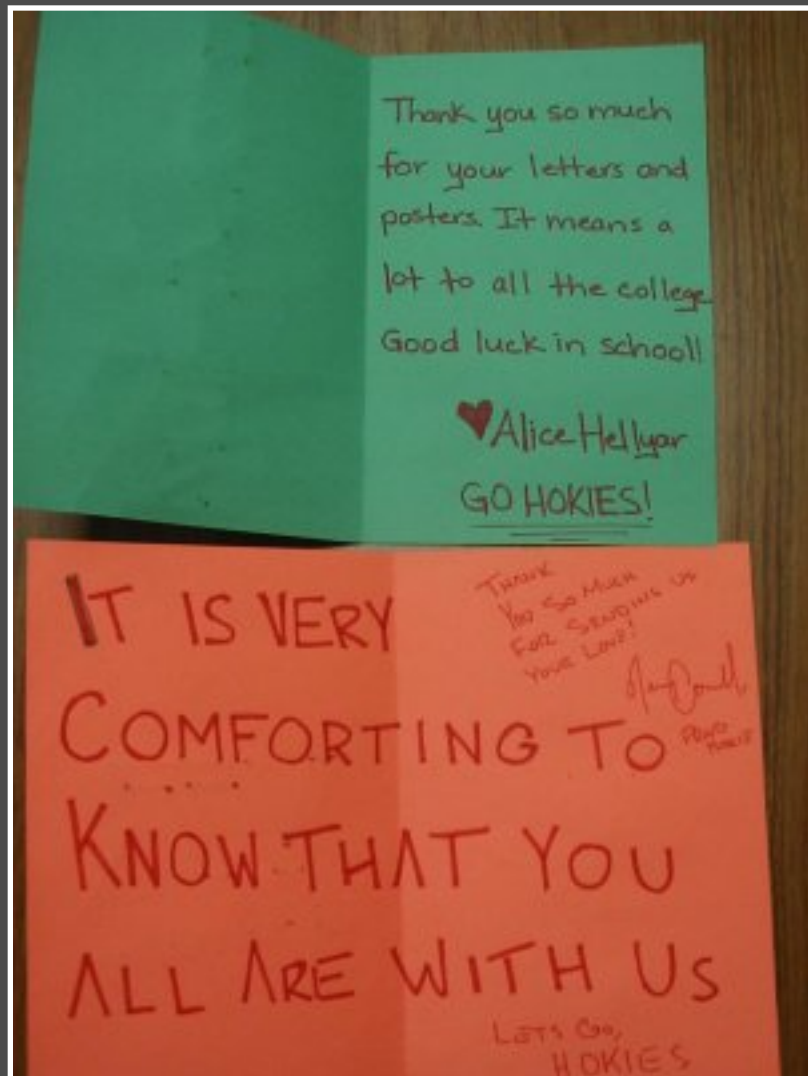 Thank you so much
for your letters and
posters. It means a
lot to all the college
Good luck in school!
♥Alice Hellyar
GO HOKIES!
IT IS VERY
COMFORTING TO
KNOW THAT YOU
ALL ARE WITH US
THANK
YOU SO MUCH
FOR SENDING US
YOUR LOVE!
LETS GO,
HOKIES